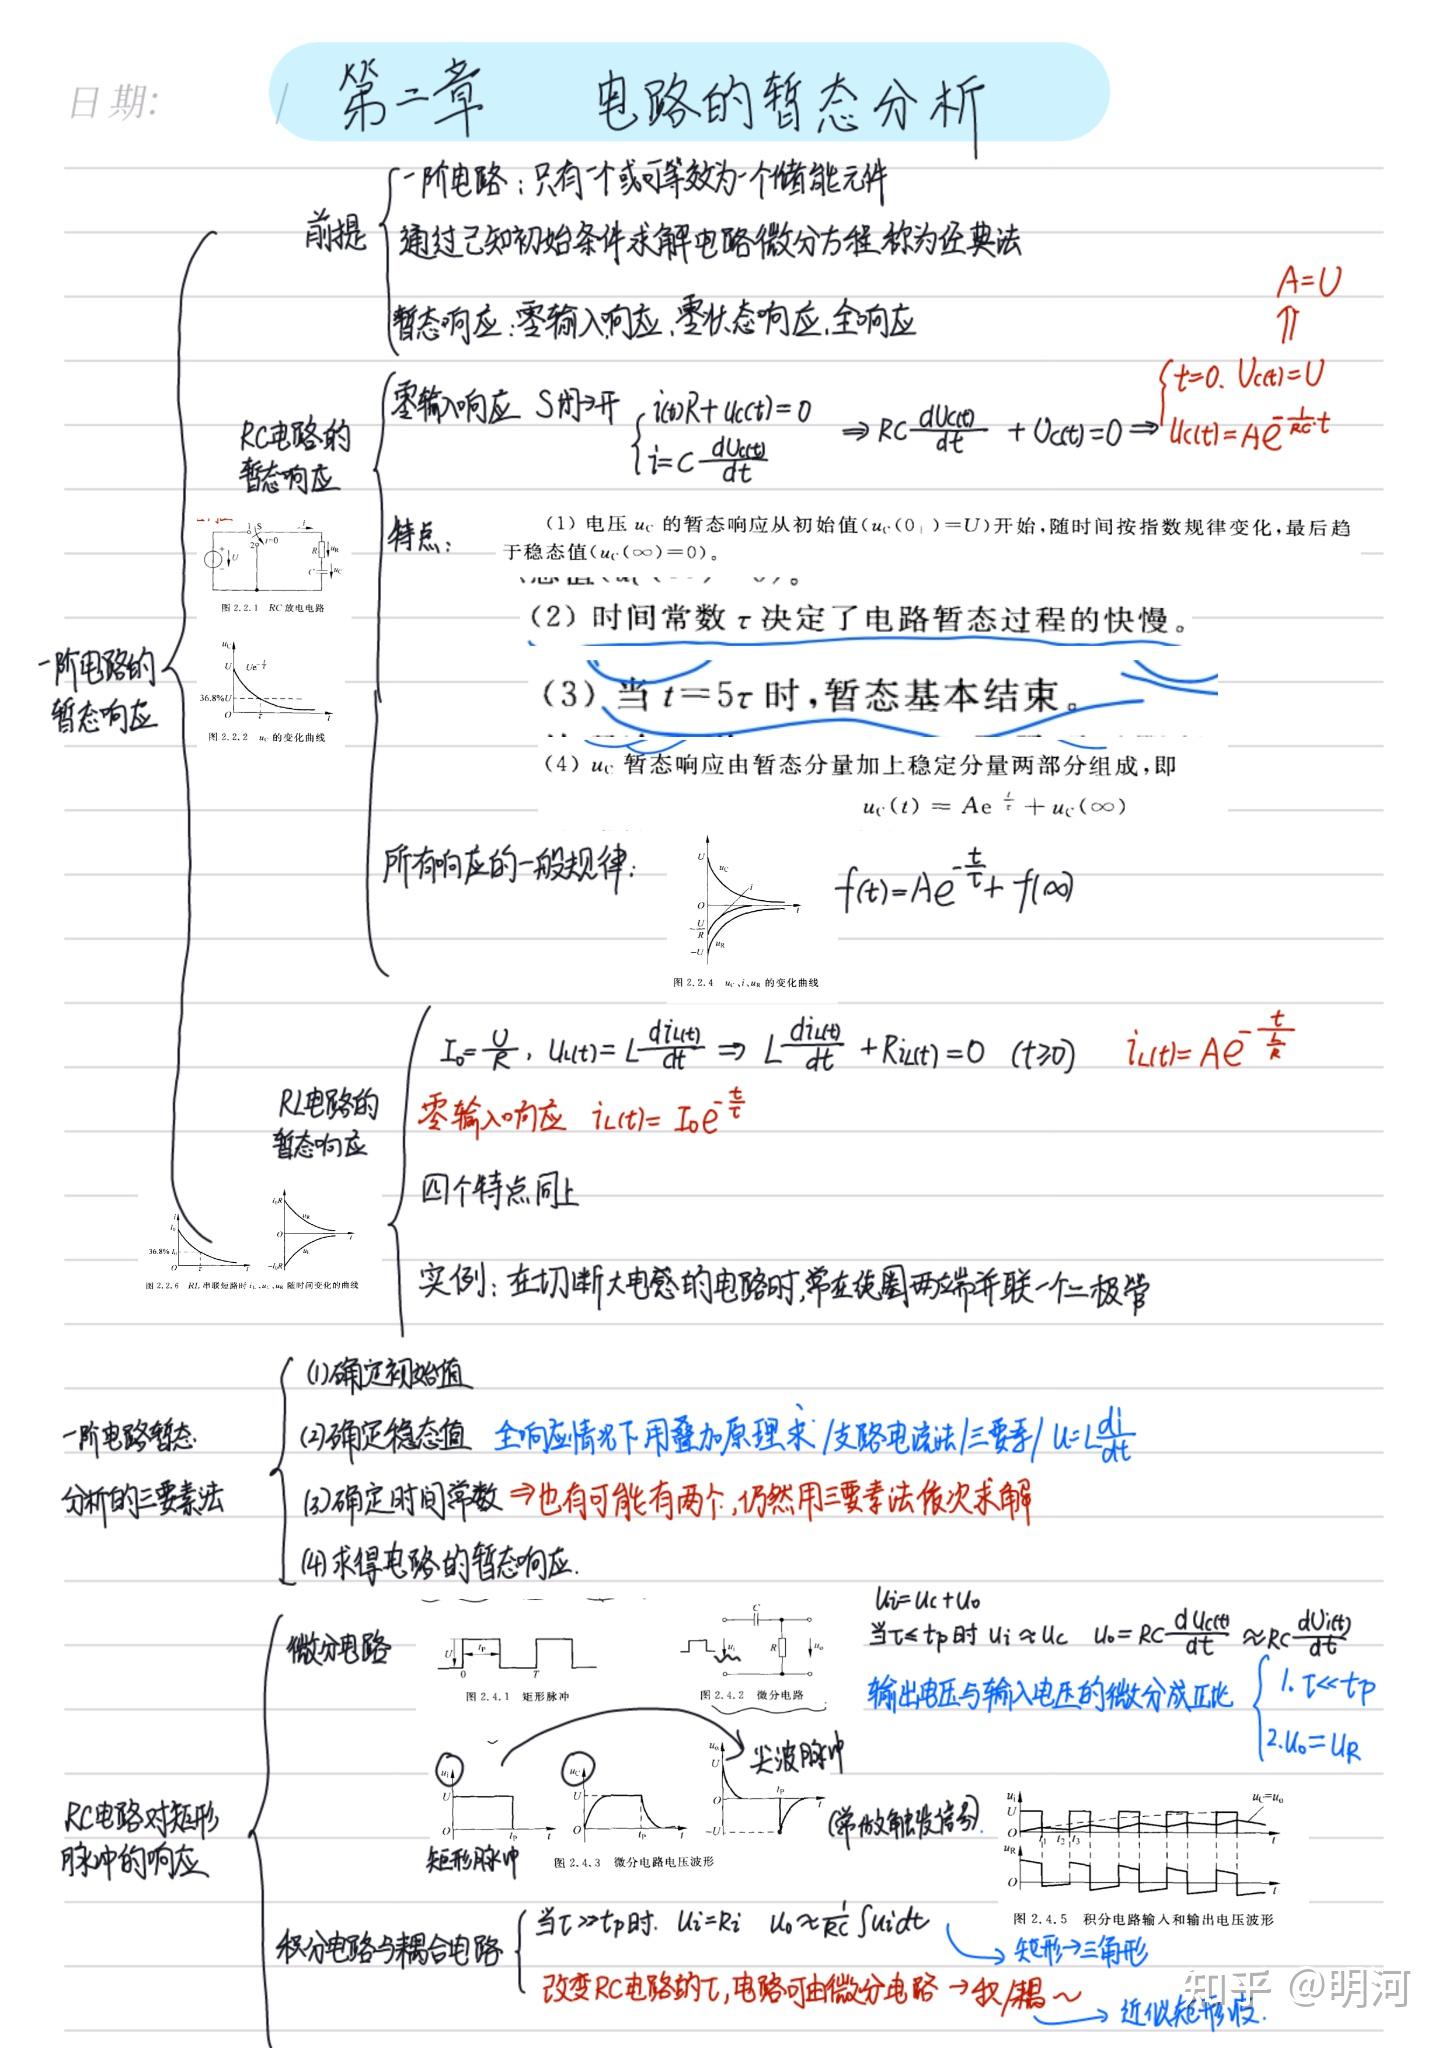 日期:
第二章 电路的暂态分析
一阶电路的暂态响应
前提
一阶电路:只有一个或可等效为一个储能元件
通过已知初始条件求解电路微分方程称为经典法
暂态响应:零输入响应、零状态响应、全响应
RC电路的暂态响应
零输入响应 S闭→开
i(t)R+uc(t)=0
i=C duc(t)/dt
⇒RC duc(t)/dt +Uc(t)=0⇒
t=0. Uc(t)=U
Uc(t)=Ae^{-1/RC·t}
A=U
特点:
(1) 电压 uC 的暂态响应从初始值(uC(0+)=U)开始,随时间按指数规律变化,最后趋
于稳态值(uC(∞)=0)。
(2) 时间常数 τ 决定了电路暂态过程的快慢。
(3) 当 t=5τ 时,暂态基本结束。
(4) uC 暂态响应由暂态分量加上稳定分量两部分组成,即
uC(t) = Ae^{-t/τ} + uC(∞)
图 2.2.1 RC 放电电路
Ue^{-t/τ}
36.8%U
图 2.2.2 uC 的变化曲线
所有响应的一般规律:
f(t)=Ae^{-t/τ}+f(∞)
图 2.2.4 uC、i、uR 的变化曲线
RL电路的暂态响应
I0=U/R, UL(t)=L diL(t)/dt ⇒ L diL(t)/dt +RiL(t)=0 (t≥0) iL(t)=Ae^{-t/(L/R)}
零输入响应 iL(t)=I0e^{-t/τ}
四个特点同上
实例:在切断大电感的电路时,常在线圈两端并联一个二极管
36.8% I0
图 2.2.6 RL 串联短路时 iL、uL、uR 随时间变化的曲线
一阶电路暂态分析的三要素法
(1)确定初始值
(2)确定稳态值 全响应情况下用叠加原理求/支路电流法/三要素/U=L di/dt
(3)确定时间常数⇒也有可能有两个,仍然用三要素法依次求解
(4)求得电路的暂态响应.
RC电路对矩形脉冲的响应
微分电路
图 2.4.1 矩形脉冲
图 2.4.2 微分电路
Ui=Uc+Uo
当τ≤tp时 Ui≈Uc Uo=RC dUc(t)/dt ≈RC dUi(t)/dt
输出电压与输入电压的微分成正比
1. τ<<tp
2. Uo=UR
尖波脉冲
(常做触发信号).
矩形脉冲
图 2.4.3 微分电路电压波形
uC=uo
图 2.4.5 积分电路输入和输出电压波形
积分电路与耦合电路
当τ>>tp时. Ui=Ri Uo≈1/RC ∫uidt
矩形→三角形
改变RC电路的τ,电路可由微分电路→积/耦~
近似矩形波.
知乎 @明河